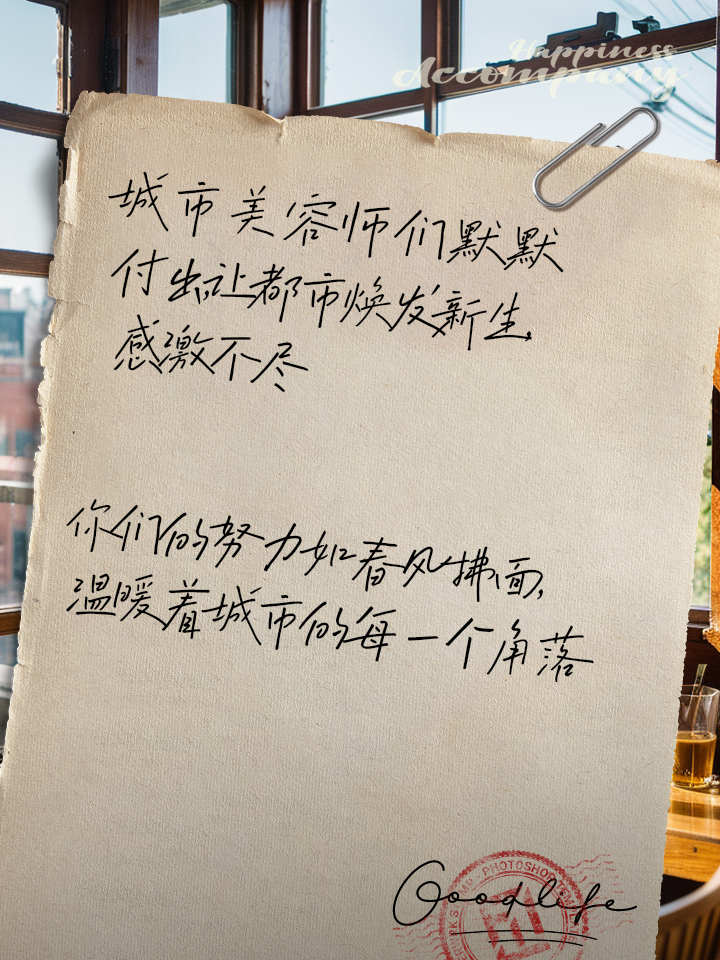 Happiness
Accompany
城市美容师们默默
付出,让都市焕发新生,
感激不尽
你们的努力如春风拂面,
温暖着城市的每一个角落
PHOTOSHOP
Goodlife